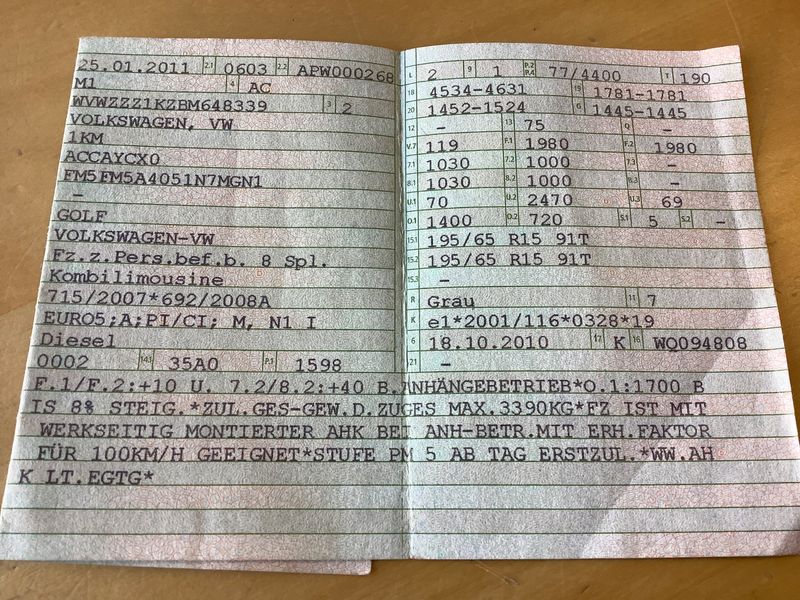 25.01.2011 2.1 0603 2.2 APW000268
M1 4 AC
WVWZZZ1KZBM648339 3 2
VOLKSWAGEN, VW
1KM
ACCAYCX0
FM5FM5A4051N7MGN1
–
GOLF
VOLKSWAGEN-VW
Fz.z.Pers.bef.b. 8 Spl.
Kombilimousine
715/2007*692/2008A
EURO5;A;PI/CI; M, N1 I
Diesel
0002 14.1 35A0 P.1 1598
L 2 9 1 P.2 P.4 77/4400 T 190
18 4534-4631 19 1781-1781
20 1452-1524 G 1445-1445
12 – 13 75 Q –
V.7 119 F.1 1980 F.2 1980
7.1 1030 7.2 1000 7.3 –
8.1 1030 8.2 1000 8.3 –
U.1 70 U.2 2470 U.3 69
O.1 1400 O.2 720 S.1 5 S.2 –
15.1 195/65 R15 91T
15.2 195/65 R15 91T
15.3 –
R Grau 11 7
K e1*2001/116*0328*19
6 18.10.2010 17 K 16 WQ094808
21 –
F.1/F.2:+10 U. 7.2/8.2:+40 B.ANHÄNGEBETRIEB*O.1:1700 B
IS 8% STEIG.*ZUL.GES-GEW.D.ZUGES MAX.3390KG*FZ IST MIT
WERKSEITIG MONTIERTER AHK BEI ANH-BETR.MIT ERH.FAKTOR
FÜR 100KM/H GEEIGNET*STUFE PM 5 AB TAG ERSTZUL.*WW.AH
K LT.EGTG*